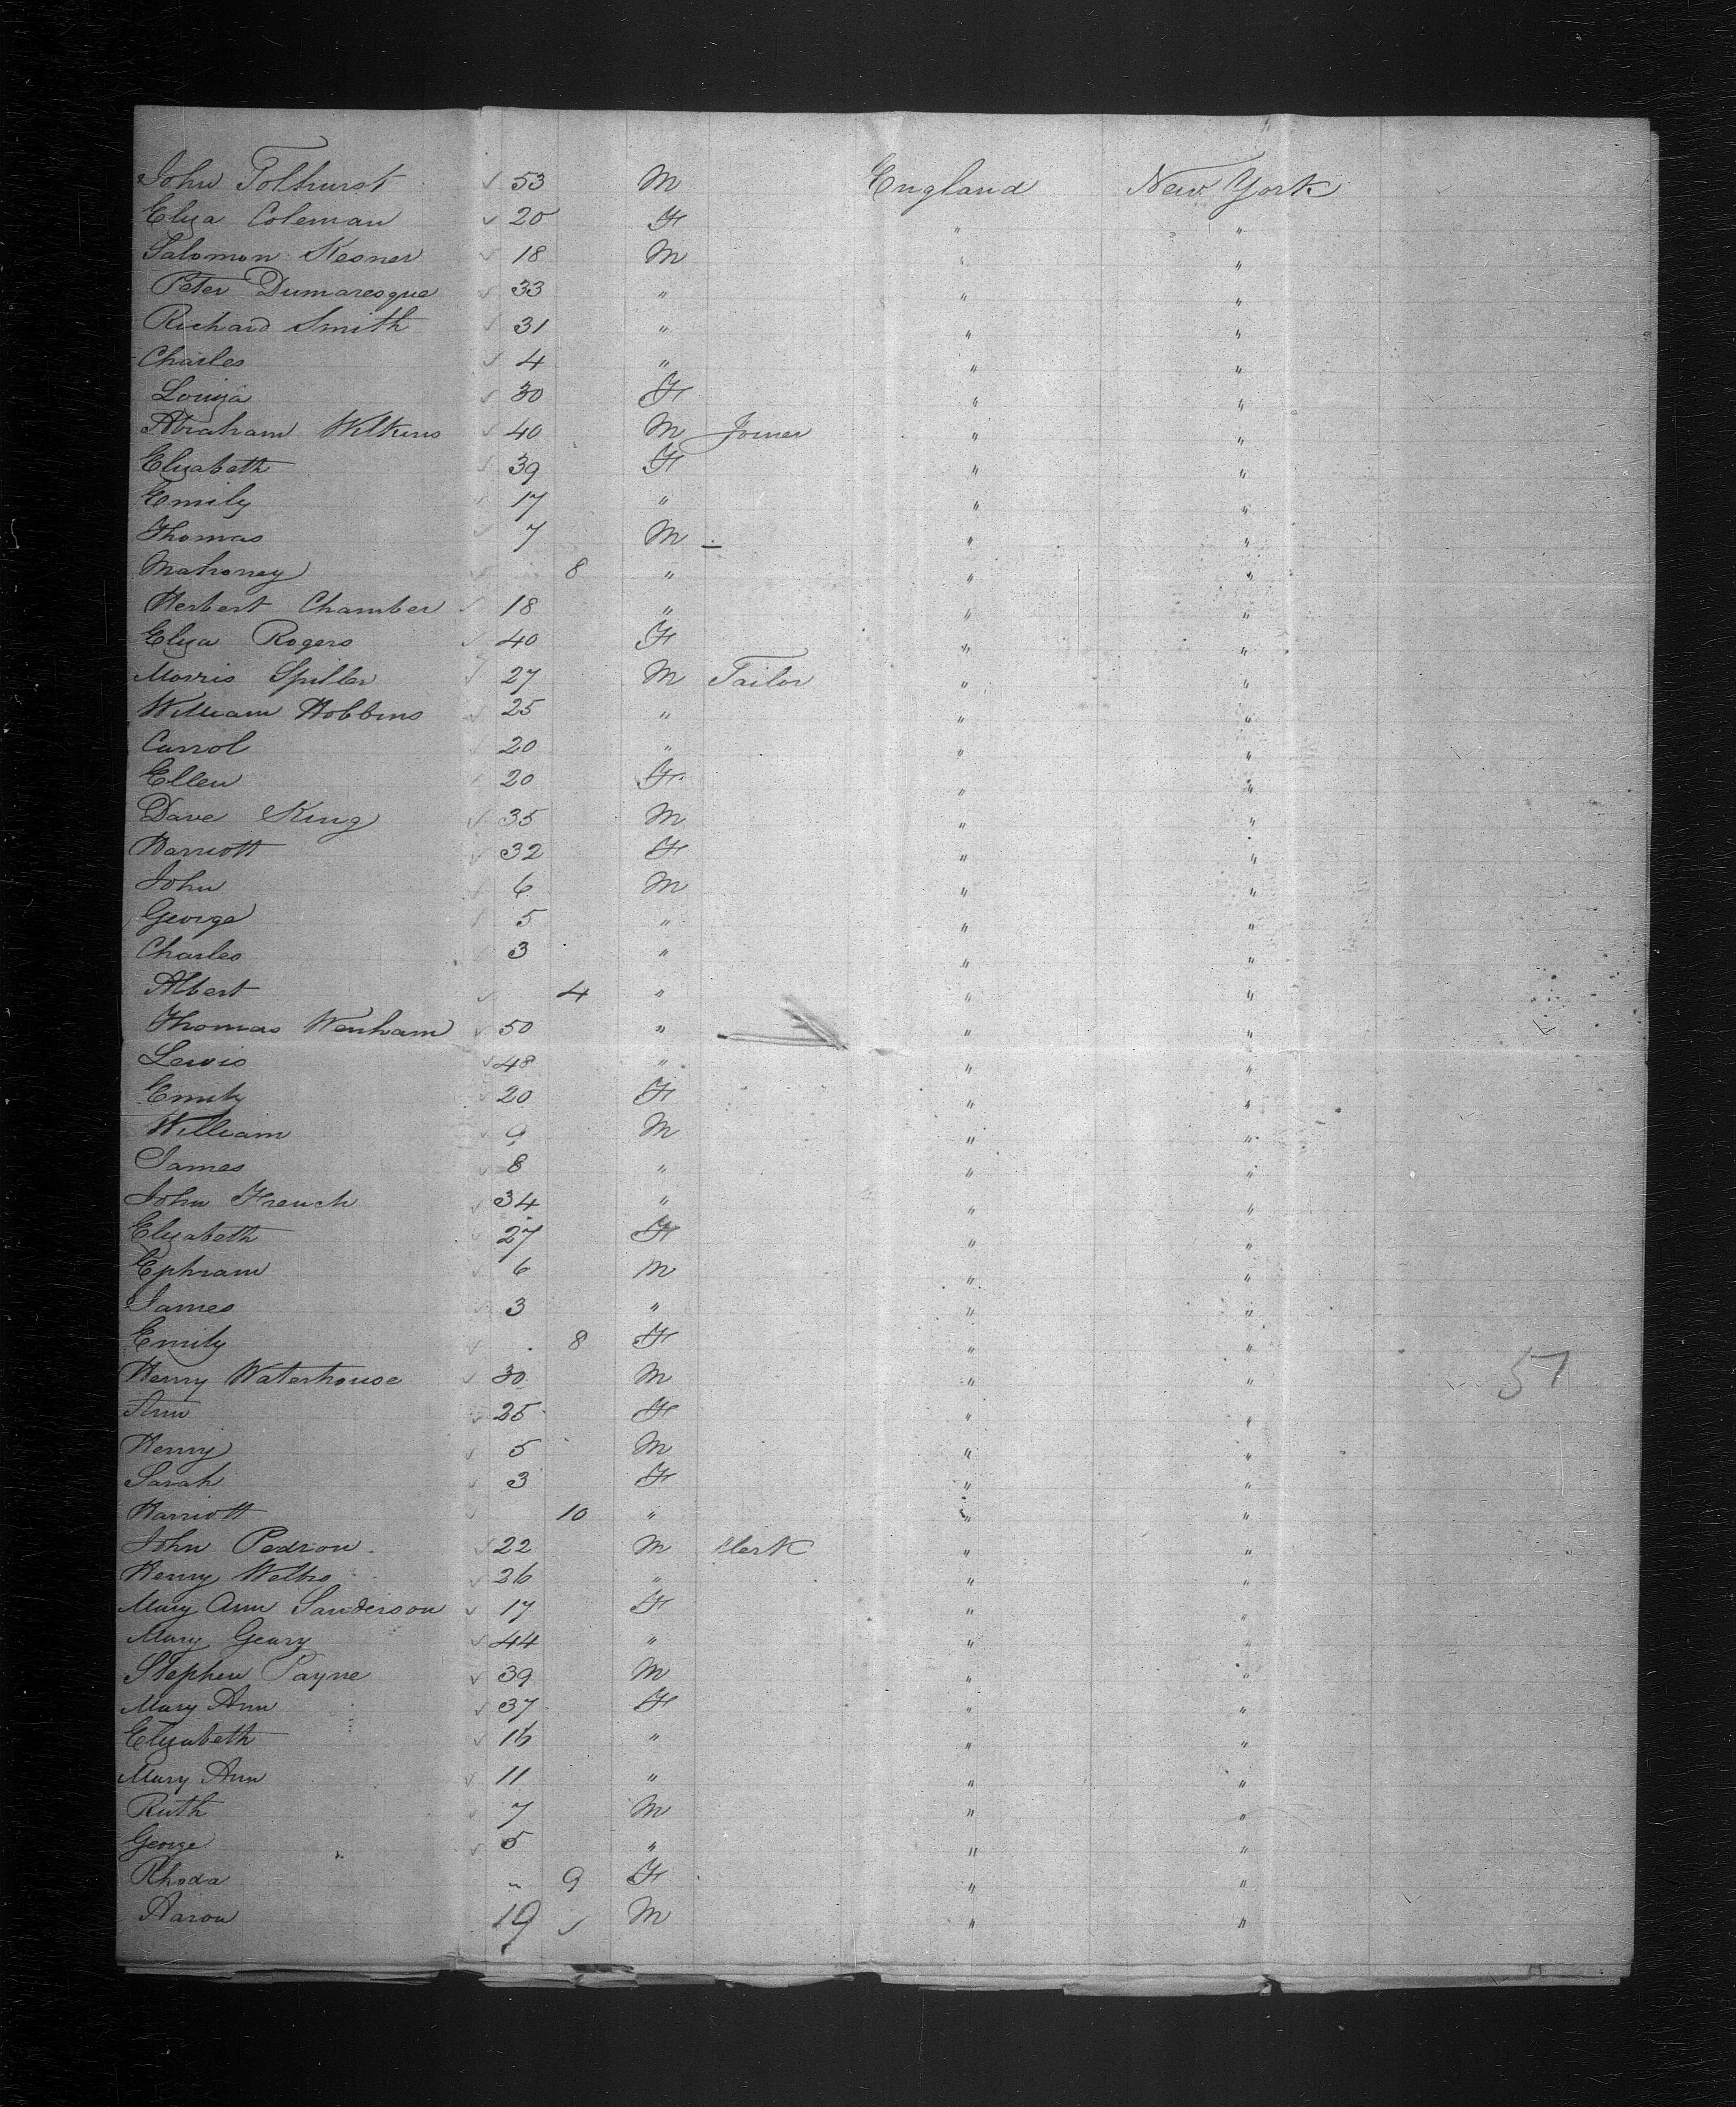 John Tolhurst 53 M England New York
Eliza Coleman 20 F " "
Salomon Kesner 18 M " "
Peter Dumaresque 33 " " "
Richard Smith 31 " " "
Charles 4 " " "
Louiza 30 F " "
Abraham Wilkins 40 M Joiner " "
Elizabeth 39 F " "
Emily 17 " " "
Thomas 7 M — " "
Mahoney 8 " " "
Herbert Chamber 18 " " "
Eliza Rogers 40 F " "
Morris Spiller 27 M Tailor " "
William Hobbins 25 " " "
Carrol 20 " " "
Ellen 20 F " "
Dave King 35 M " "
Harriott 32 F " "
John 6 M " "
George 5 " " "
Charles 3 " " "
Albert 4 " " "
Thomas Wenham 50 " " "
Lewis 48 " " "
Emily 20 F " "
William 9 M " "
James 8 " " "
John French 34 " " "
Elizabeth 27 F " "
Ephram 6 M " "
James 3 " " "
Emily 8 F " "
Henry Waterhouse 30 M " " 57
Ann 25 F " "
Henry 5 M " "
Sarah 3 F " "
Harriott 10 " " "
John 22 M Clerk " "
Henry 26 " " "
Mary Ann Sanderson 17 F " "
Mary Geary 44 " " "
Stephen Payne 39 M " "
Mary Ann 37 F " "
Elizabeth 16 " " "
Mary Ann 11 " " "
Ruth 7 M " "
George 5 " " "
Rhoda " 9 F " "
Aaron 19 M " "